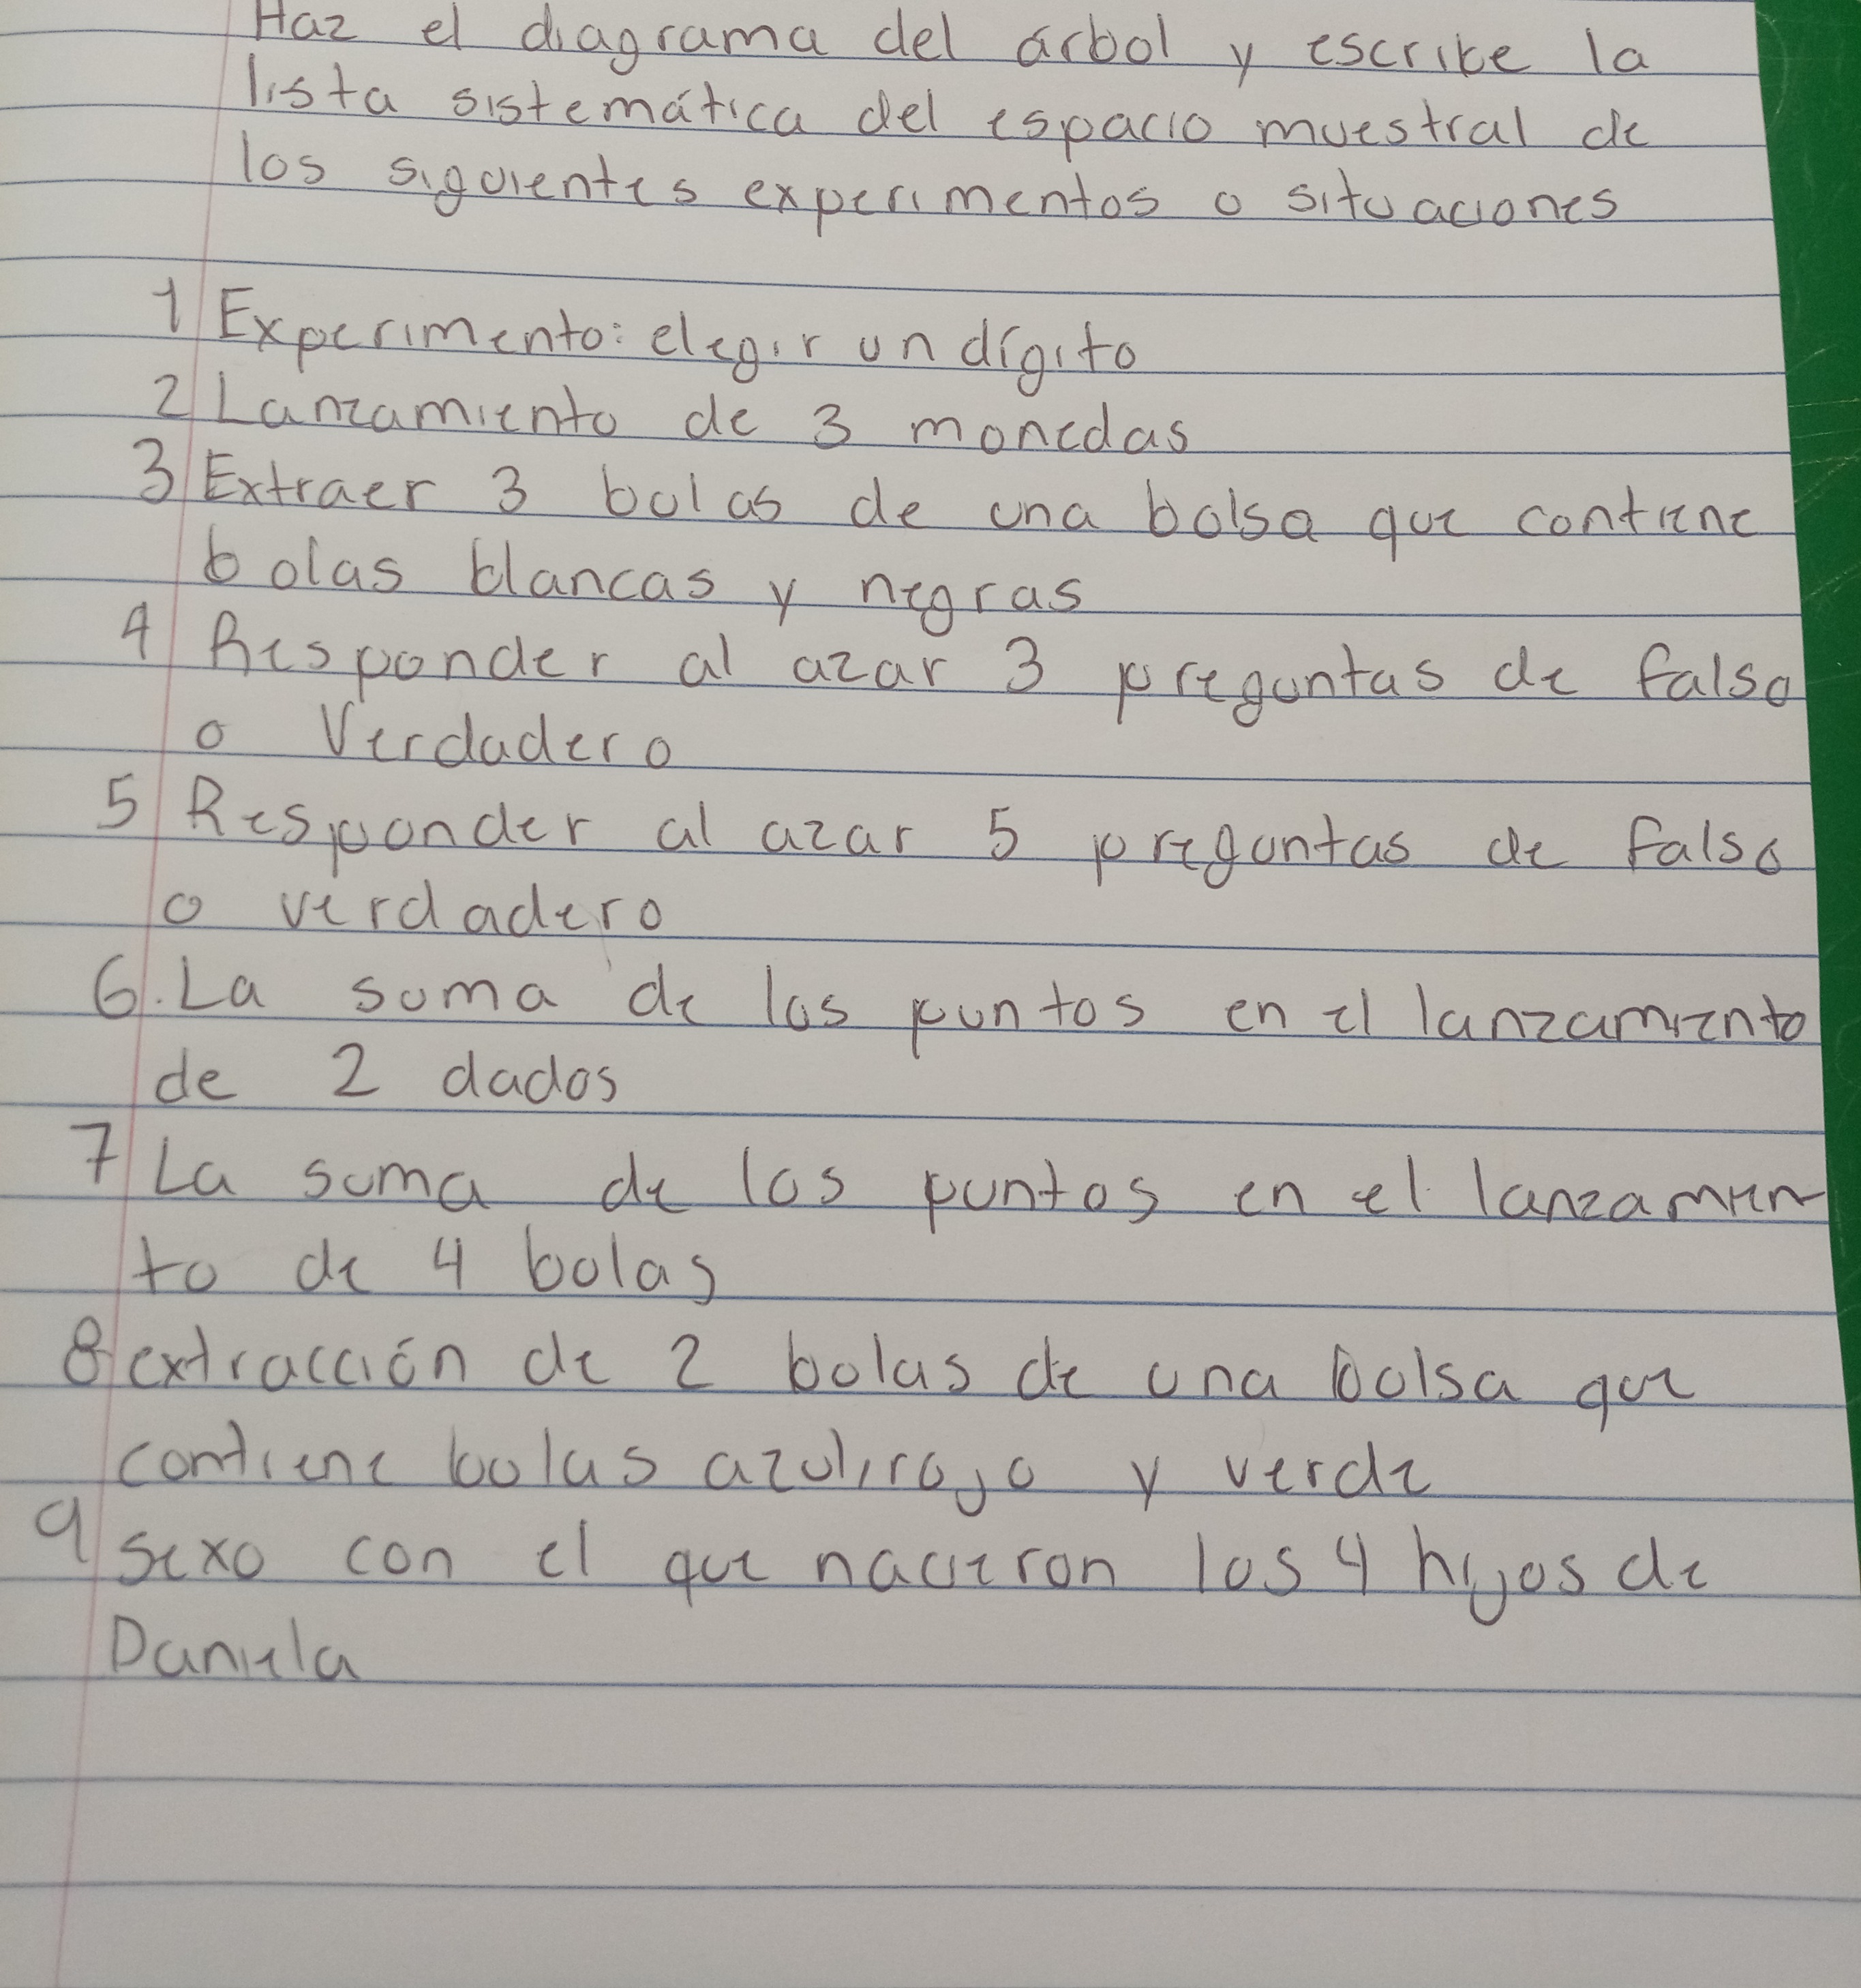 Haz el diagrama del árbol y escribe la
lista sistemática del espacio muestral de
los siguientes experimentos o situaciones
1 Experimento: elegir un dígito
2 Lanzamiento de 3 monedas
3 Extraer 3 bolas de una bolsa que contiene
bolas blancas y negras
4 Responder al azar 3 preguntas de falso
o Verdadero
5 Responder al azar 5 preguntas de falso
o verdadero
6. La suma de los puntos en el lanzamiento
de 2 dados
7 La suma de los puntos en el lanzamien
to de 4 bolas
8 extracción de 2 bolas de una bolsa que
contiene bolas azul, rojo y verde
9 sexo con el que nacieron los 4 hijos de
Daniela